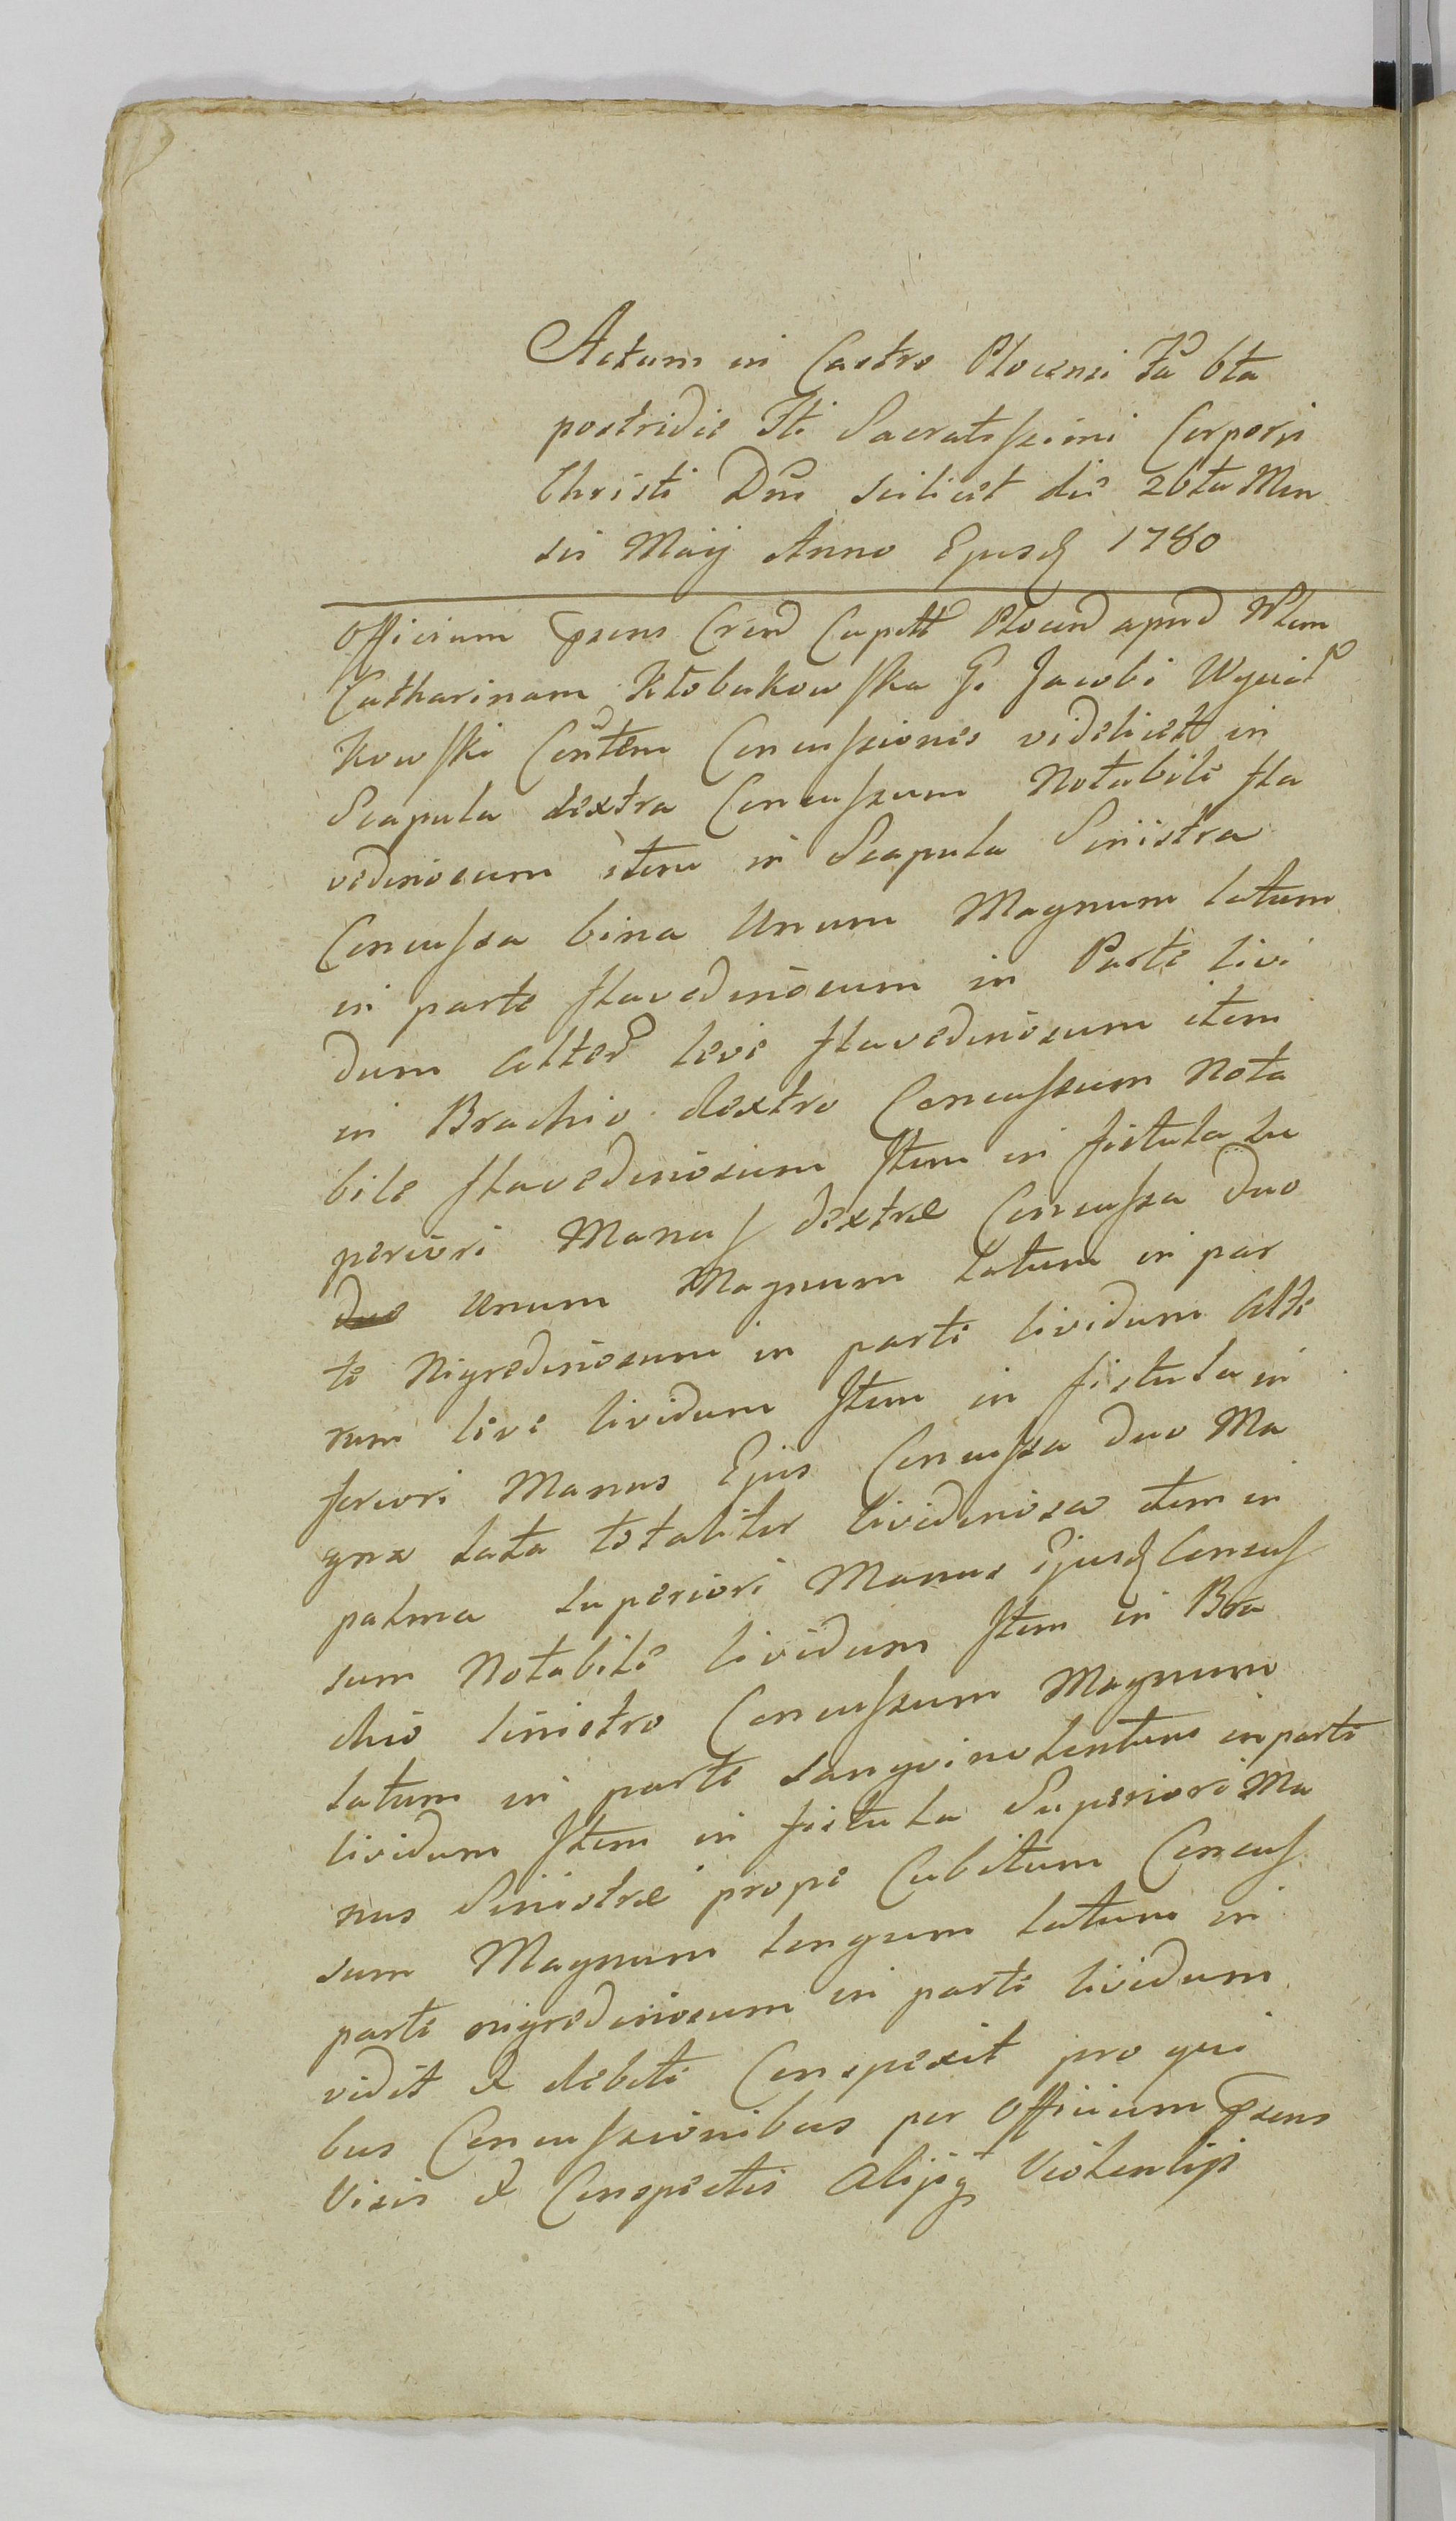 Actum in Castro Plocensi Fa 6ta
postridie Fti Sacratissimi Corporis
Christi Dni scilicet die 26ta Men
sis Maij Anno Ejusd 1780
Officium psens Cren Capitt Plocen apud Nblem
Catharinam Kłobukowska G. Jacobi
kowski Concussiones videlicet in
Scapula dextra Concussum Notabile fla
vedinosum item in Scapula Sinistra
Concussa bina Unum Magnum latum
in parte flavedinosum in Parte livi
dum alter leve flavedinosum item
in Brachio dextro Concussum Nota
bile flavedinosum Item in fistula su
periori Manus dextræ Concussa duo
duo Unum Magnum latum in par
te Nigredinosum in parte lividum alte
rum leve lividum Item in fistula in
feriori Manus Ejus Concussa duo Ma
gna lata totaliter lividinosa item in
palma superiori Manus Ejusd Concus
sum Notabile lividum Item in Bra
chio sinistro Concussum Magnum
latum in parte sangvinolentum in parte
lividum Item in fistula Superiori Ma
nus Sinistræ prope Cubitum Concus
sum Magnum longum latum in
parte nigredinosum in parte lividum
vidit & debite Conspexit pro qui
bus Concussionibus per Officium psens
Visis & Conspectis alijsq Violentijs